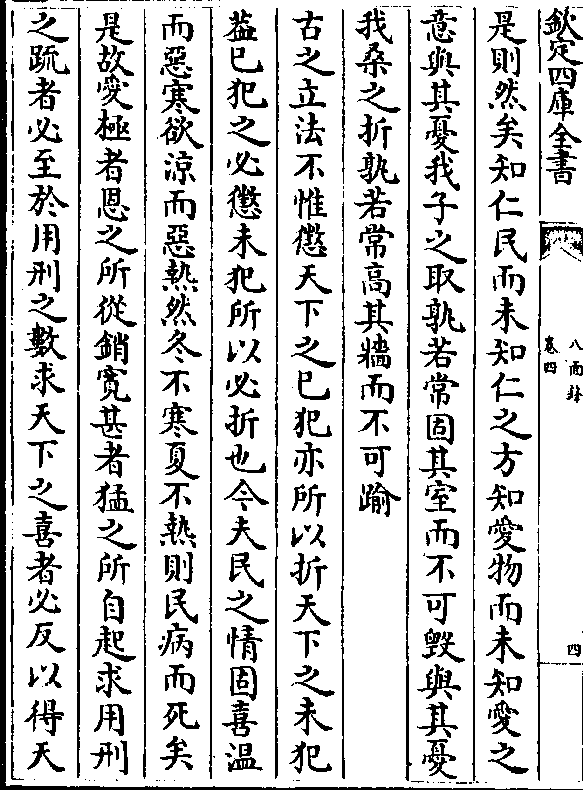 欽定四庫全書
八面鋒
卷四
四
是則然矣知仁民而未知仁之方知愛物而未知愛之
意與其憂我子之取孰若常固其室而不可毀與其憂
我桑之折孰若常高其牆而不可踰
古之立法不惟懲天下之已犯亦所以折天下之未犯
葢已犯之必懲未犯所以必折也今夫民之情固喜温
而惡寒欲涼而惡熱然冬不寒夏不熱則民病而死矣
是故愛極者恩之所從銷寛甚者猛之所自起求用刑
之䟽者必至於用刑之數求天下之喜者必反以得天